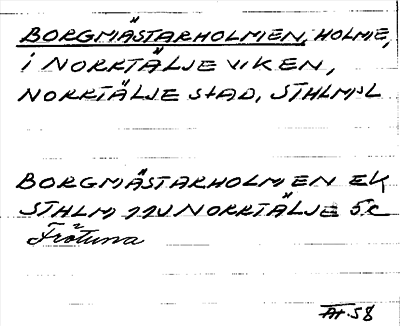 BORGMÄSTARHOLMEN, HOLME,
i NORRTÄLJE VIKEN,
NORRTÄLJE STAD, STHLMSL
BORGMÄSTARHOLMEN EK
STHLM 11J NORRTÄLJE 5c
Frötuna
AH.58